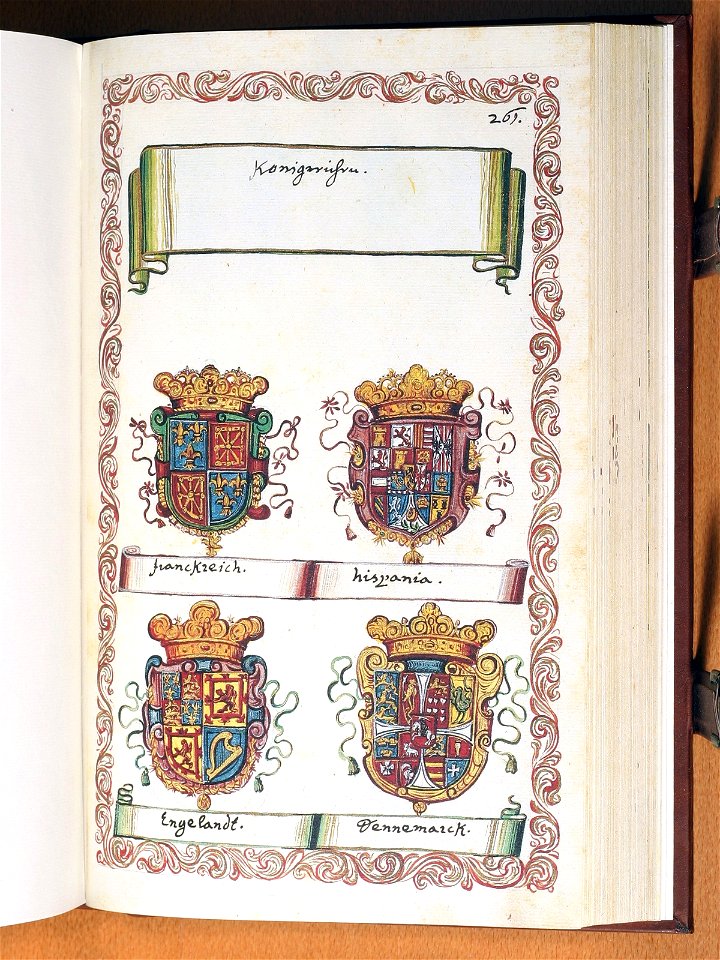 261.
Königreichen.
franckreich.
hispania.
Engelandt.
Dennemarck.